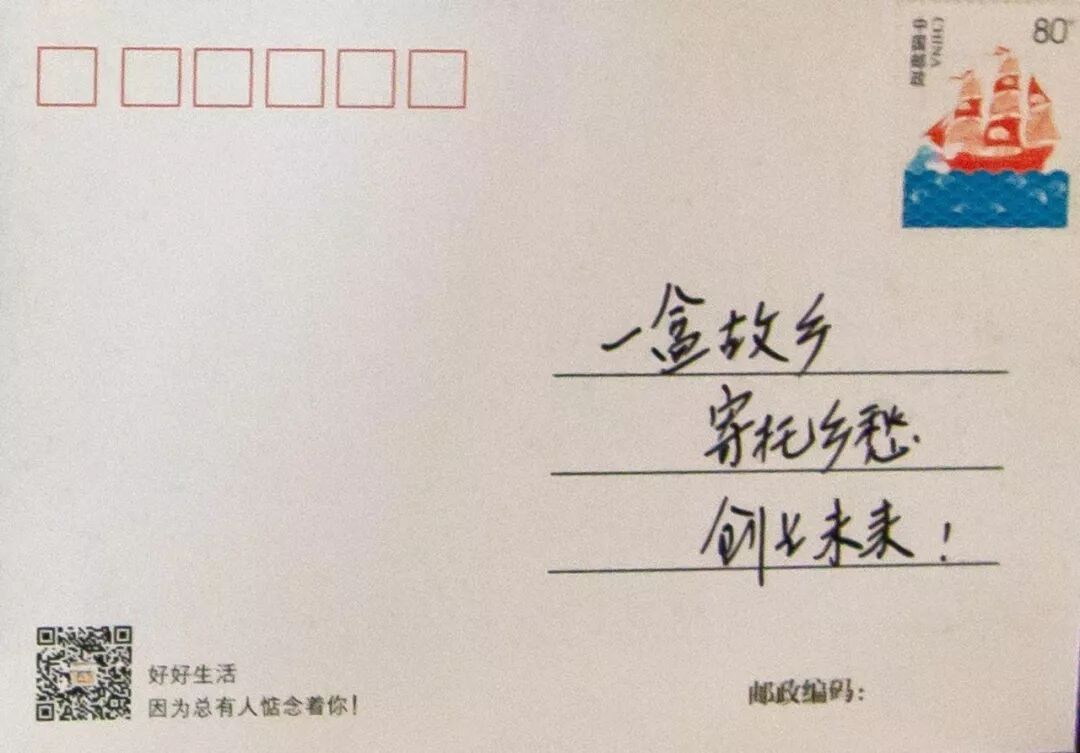 中国邮政
CHINA
80分
一盒故乡
寄托乡愁
创业未来！
好好生活
因为总有人惦念着你！
邮政编码：